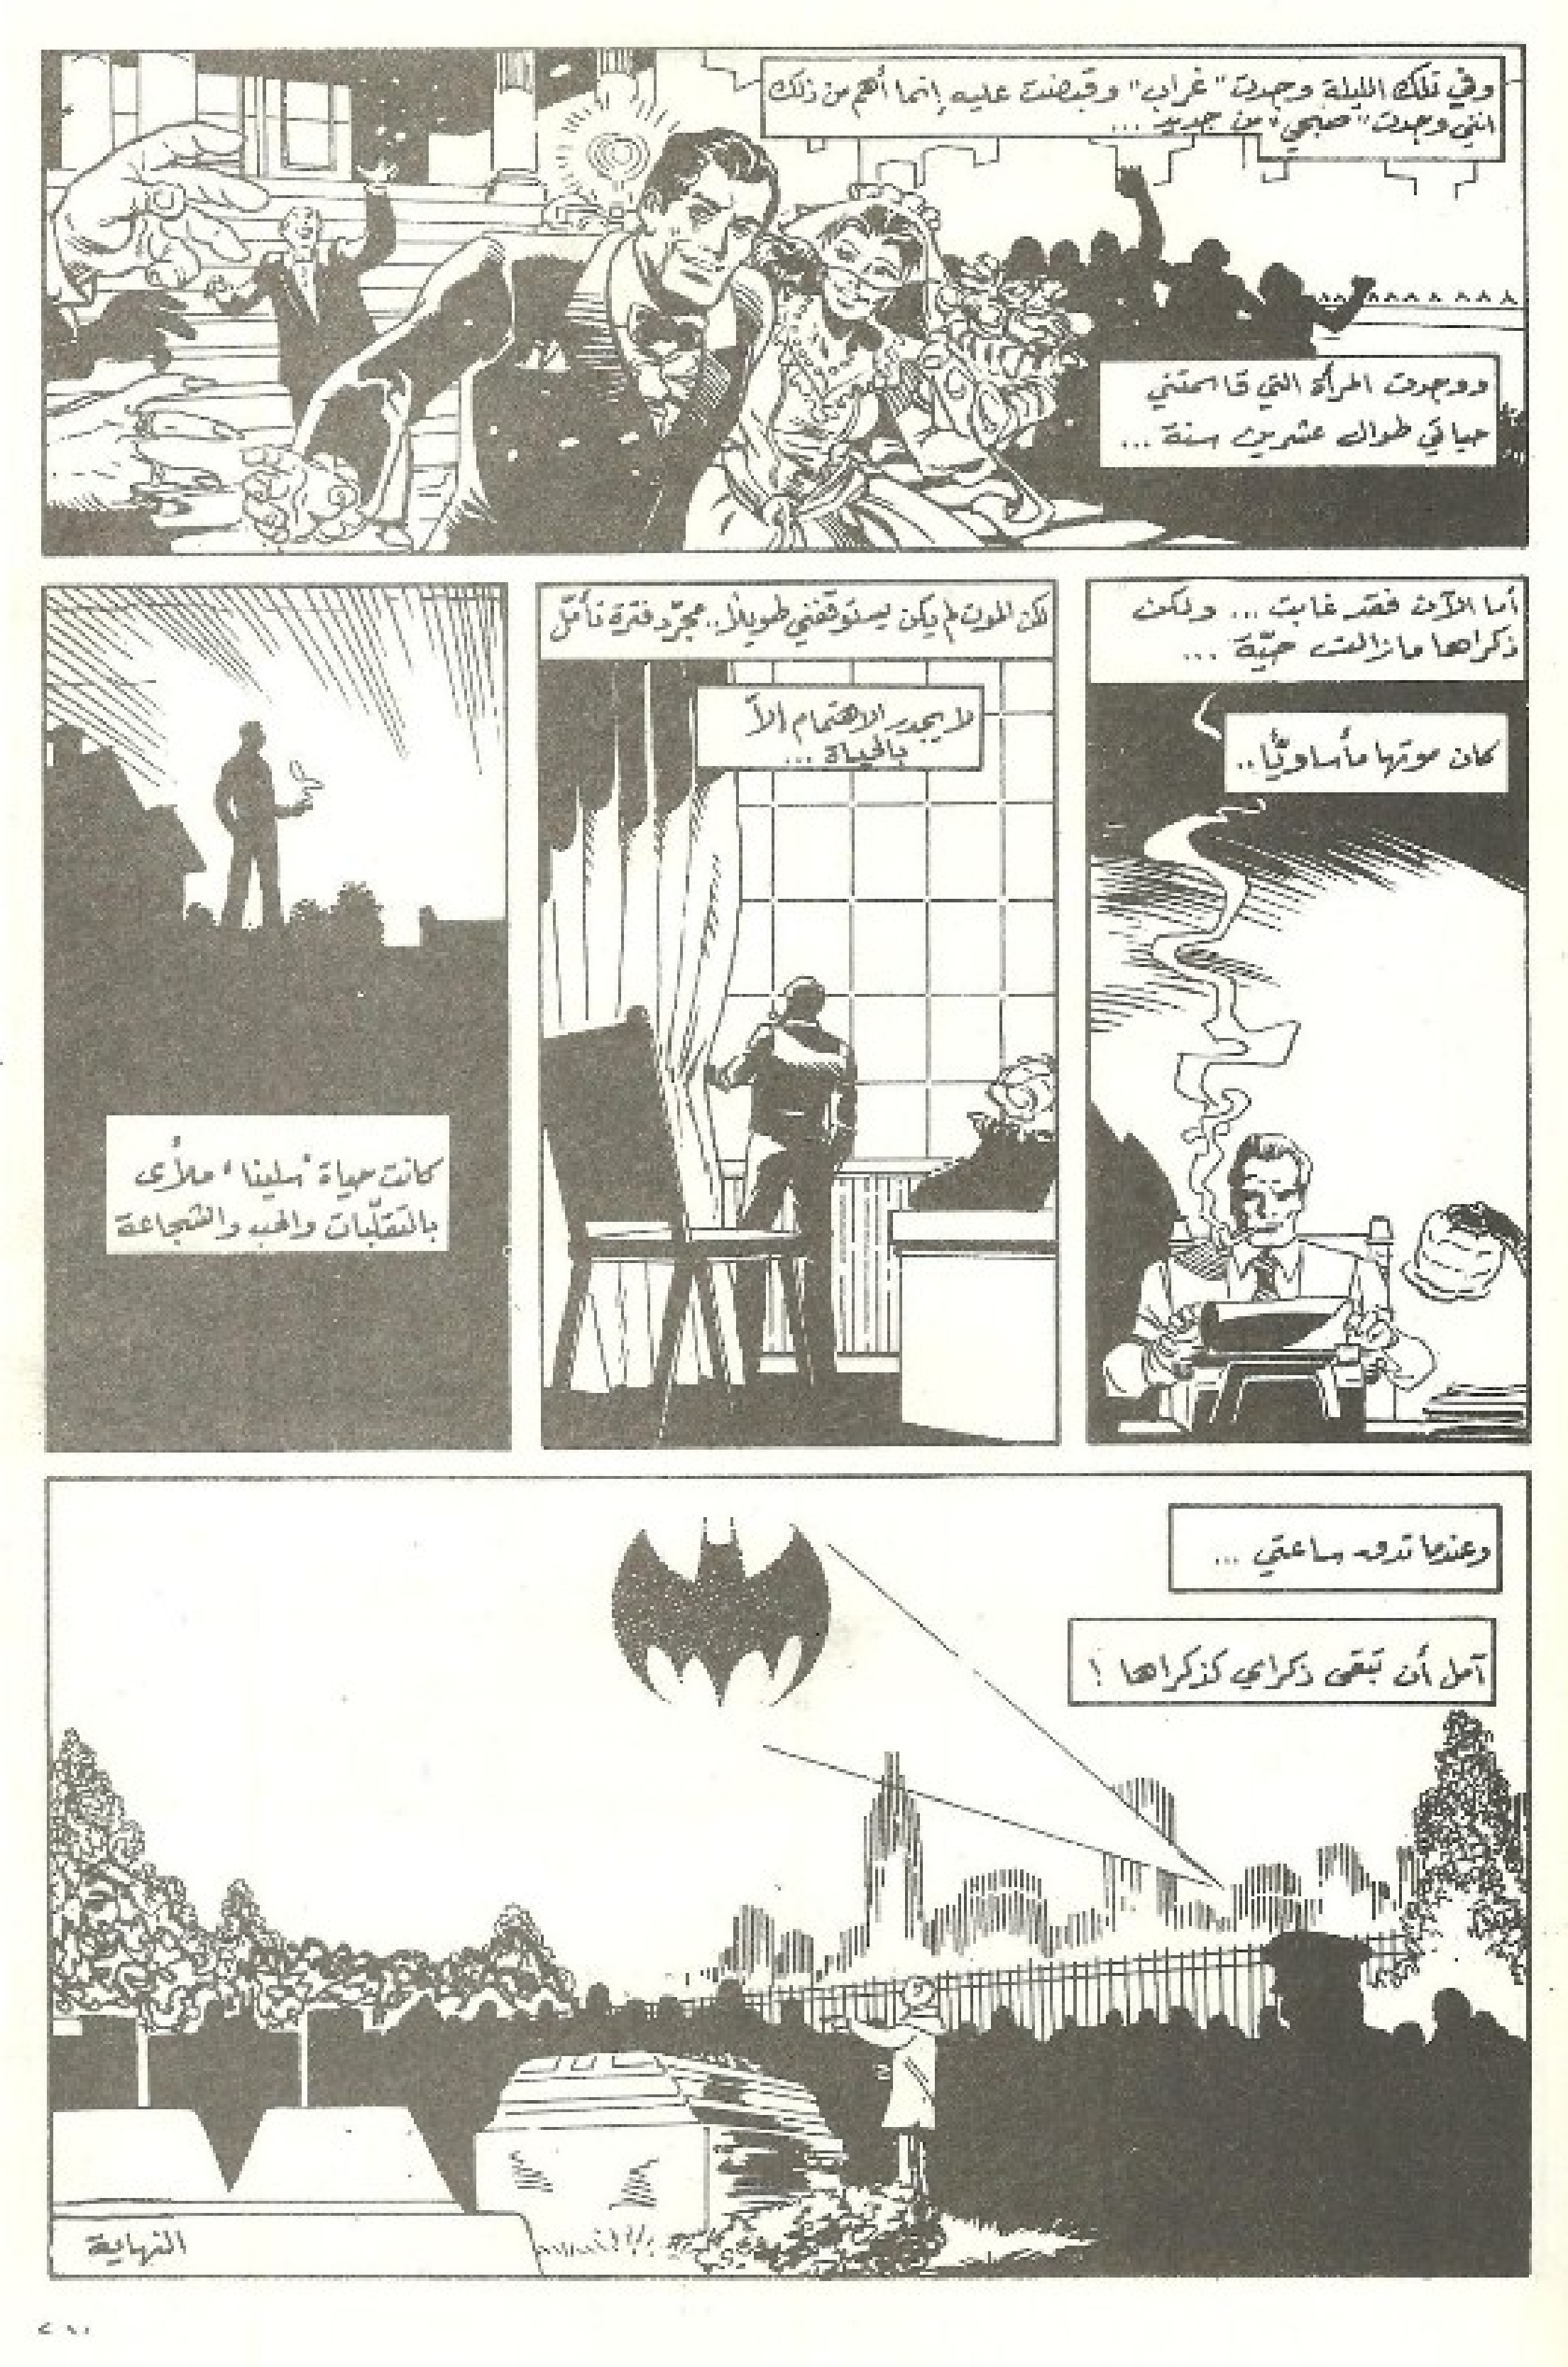 وفي تلك الليلة وجدت "غراب" وقبضت عليه إنما أهم من ذلك
انني وجدت "صبحي" من جديد ...
ووجدت المرأة التي قاسمتني
حياتي طوال عشرين سنة ...
أما الآن فقد غابت ... ولكن
ذكراها مازالت حيّة ...
كان موتها مأساويًّا ..
لكن الموت لم يكن يستوقفني طويلاً .. مجرّد فترة تأمّل
لا يجدر الاهتمام إلاّ
بالحياة ...
كانت حياة "سلينا" ملأى
بالتقلّبات والحب والشجاعة
وعندما تدق ساعتي ...
آمل أن تبقى ذكراي كذكراها !
النهاية